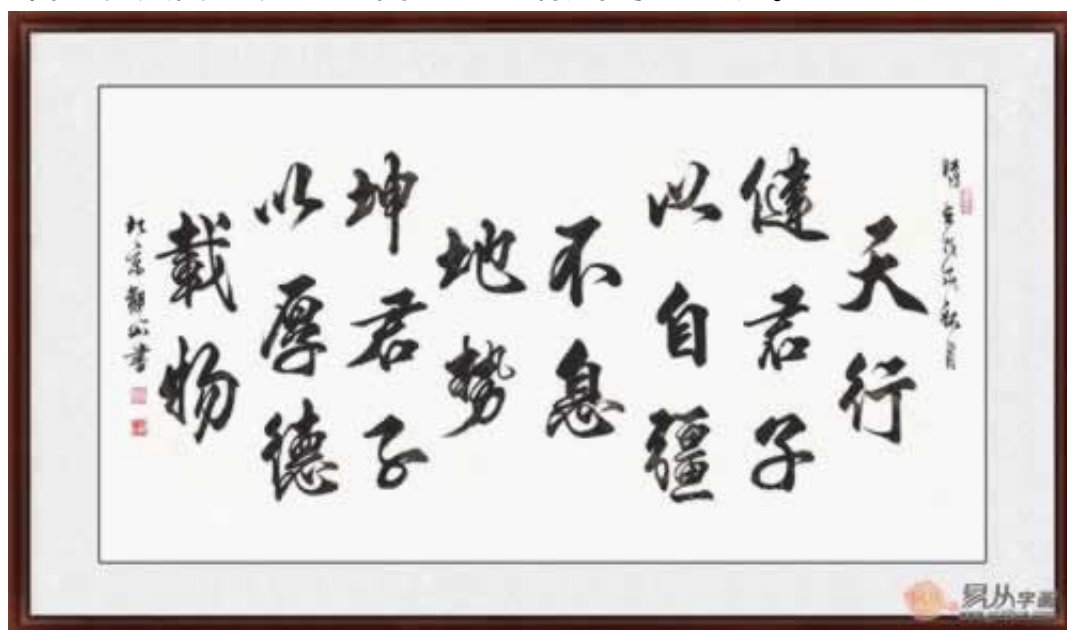 天行
健君子
以自疆
不息
地势
坤君子
以厚德
載物
書
易从字画